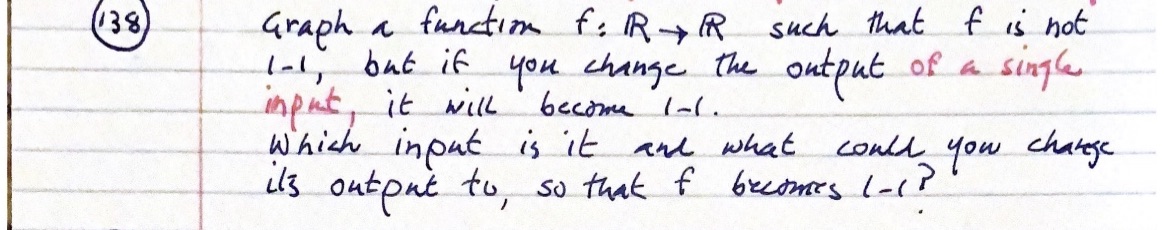 138
Graph a function f: ℝ → ℝ such that f is not
1-1, but if you change the output of a single
input, it will become 1-1.
Which input is it and what could you change
its output to, so that f becomes 1-1?